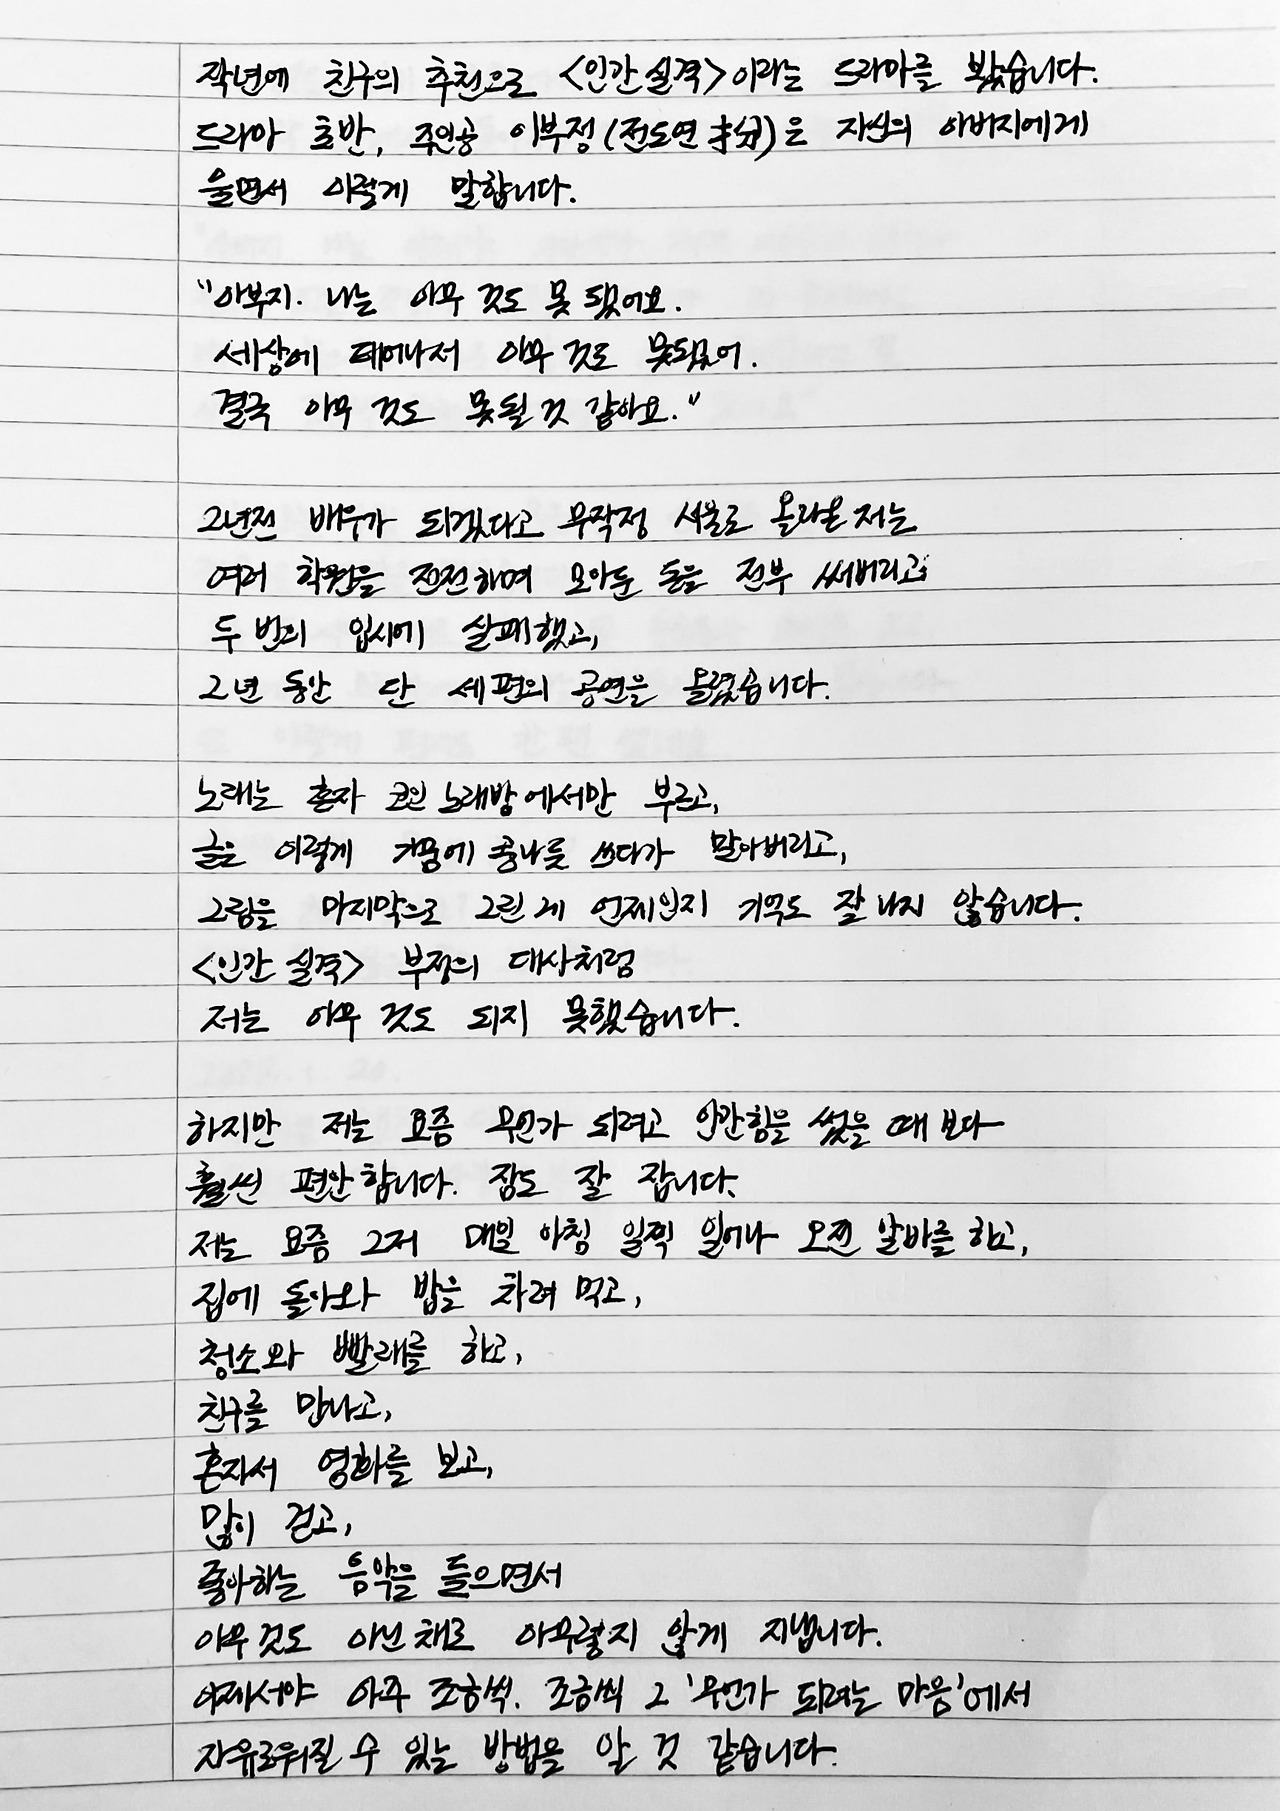 작년에 친구의 추천으로 <인간 실격>이라는 드라마를 봤습니다.
드라마 초반, 주인공 이부정(전도연 扮)은 자신의 아버지에게
울면서 이렇게 말합니다.
"아부지. 나는 아무 것도 못 됐어요.
세상에 태어나서 아무 것도 못됐어.
결국 아무 것도 못될 것 같아요."
2년전 배우가 되겠다고 무작정 서울로 올라온 저는
여러 학원을 전전하며 모아둔 돈을 전부 써버리고
두 번의 입시에 실패했고,
2년 동안 단 세 편의 공연을 올렸습니다.
노래는 혼자 코인 노래방에서만 부르고,
글은 이렇게 가뭄에 콩나듯 쓰다가 말아버리고,
그림은 마지막으로 그린 게 언제인지 기억도 잘 나지 않습니다.
<인간 실격> 부정의 대사처럼
저는 아무 것도 되지 못했습니다.
하지만 저는 요즘 무언가 되려고 안간힘을 썼을 때 보다
훨씬 편안합니다. 잠도 잘 잡니다.
저는 요즘 그저 매일 아침 일찍 일어나 오전 알바를 하고,
집에 돌아와 밥을 차려 먹고,
청소와 빨래를 하고,
친구를 만나고,
혼자서 영화를 보고,
많이 걷고,
좋아하는 음악을 들으면서
아무것도 아닌 채로 아무렇지 않게 지냅니다.
이제서야 아주 조금씩. 조금씩 그 '무언가 되려는 마음'에서
자유로워질 수 있는 방법을 알 것 같습니다.